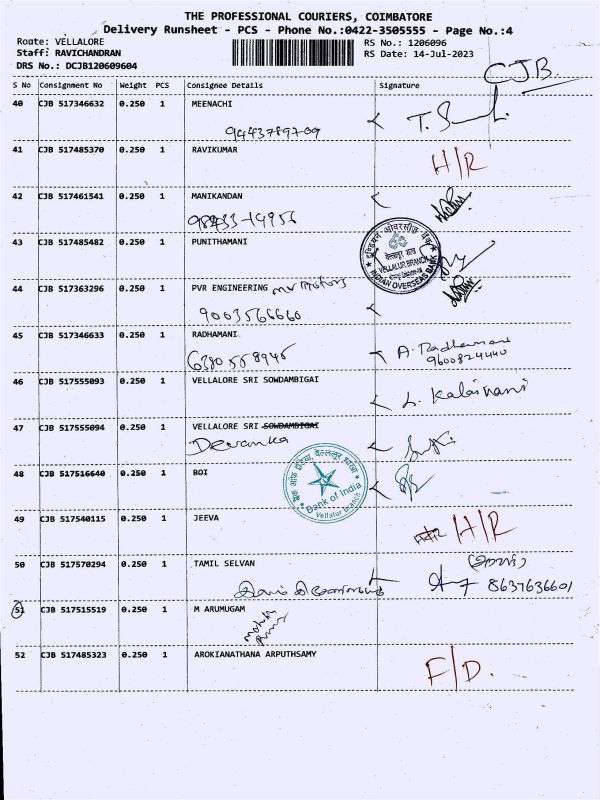 THE PROFESSIONAL COURIERS, COIMBATORE
Delivery Runsheet - PCS - Phone No.:0422-3505555 - Page No.:4
Route: VELLALORE
RS No.: 1206096
Staff: RAVICHANDRAN
RS Date: 14-Jul-2023
DRS No.: DCJB120609604
CJB.
S No Consignment No Weight PCS Consignee Details Signature
40 CJB 517346632 0.250 1 MEENACHI
9443789709
41 CJB 517485370 0.250 1 RAVIKUMAR H/R
42 CJB 517461541 0.250 1 MANIKANDAN
43 CJB 517485482 0.250 1 PUNITHAMANI
इण्डियन ओवरसीज़ बैंक
VELLALUR BRANCH
INDIAN OVERSEAS BANK
44 CJB 517363296 0.250 1 PVR ENGINEERING
9003566660
45 CJB 517346633 0.250 1 RADHAMANI
6380558945
A. Radhamani
9600824440
46 CJB 517555093 0.250 1 VELLALORE SRI SOWDAMBIGAI
L. Kalaivani
47 CJB 517555094 0.250 1 VELLALORE SRI SOWDAMBIGAI
Devanka
48 CJB 517516640 0.250 1 BOI
बैंक ऑफ इंडिया, वेल्लूर शाखा
Bank of India
Vellalur branch
49 CJB 517540115 0.250 1 JEEVA H/R
50 CJB 517570294 0.250 1 TAMIL SELVAN
8637636601
51 CJB 517515519 0.250 1 M ARUMUGAM
52 CJB 517485323 0.250 1 AROKIANATHANA ARPUTHSAMY
F/D.